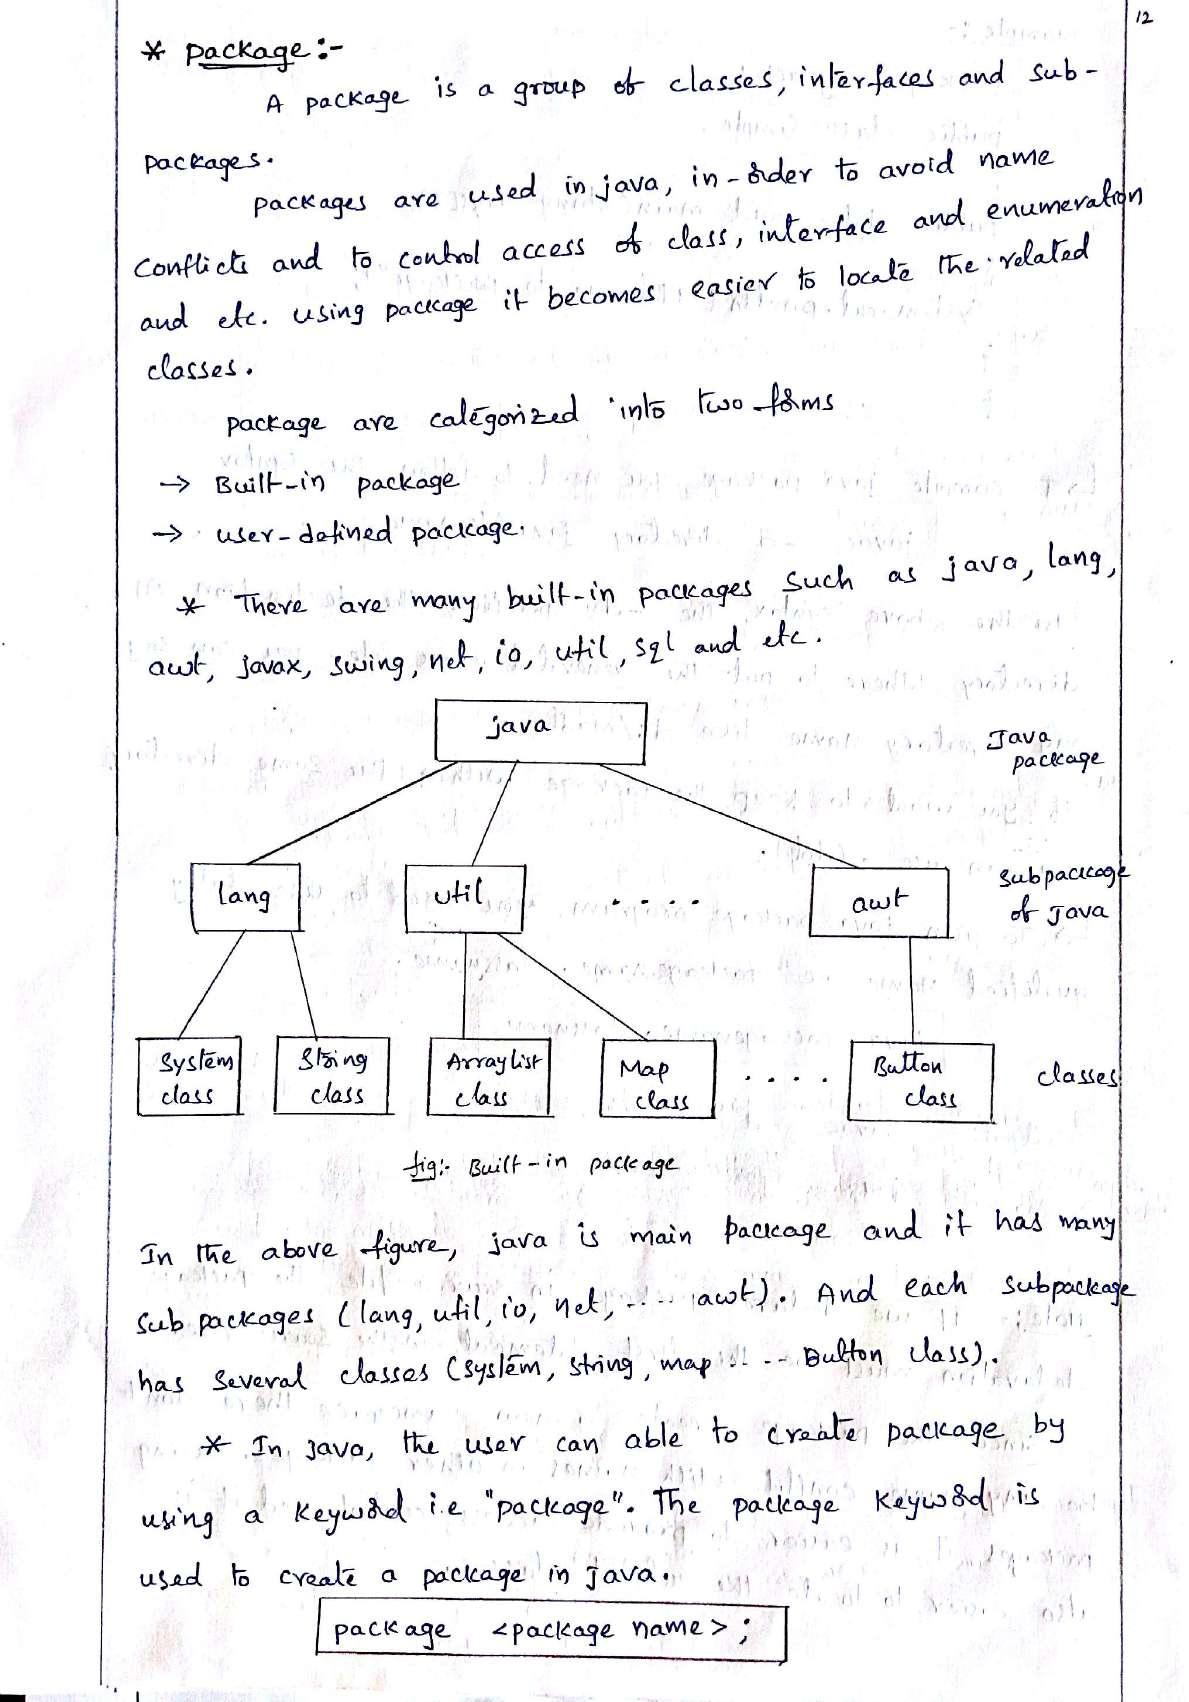 12
* package:-
A package is a group of classes, interfaces and sub-
packages.
packages are used in java, in-order to avoid name
conflicts and to control access of class, interface and enumeration
and etc. using package it becomes easier to locate the related
classes.
package are categorized into two forms
→ Built-in package
→ user-defined package.
* There are many built-in packages such as java, lang,
awt, javax, swing, net, io, util, sql and etc.
java
Java
package
lang util .... awt
subpackage
of Java
System
class
String
class
ArrayList
class
Map
class
....
Button
class
classes
fig:- Built-in package
In the above figure, java is main package and it has many
sub packages (lang, util, io, net, .... awt). And each subpackage
has several classes (system, string, map .. .. Button class).
* In java, the user can able to create package by
using a keyword i.e "package". The package keyword is
used to create a package in java.
package <package name>;